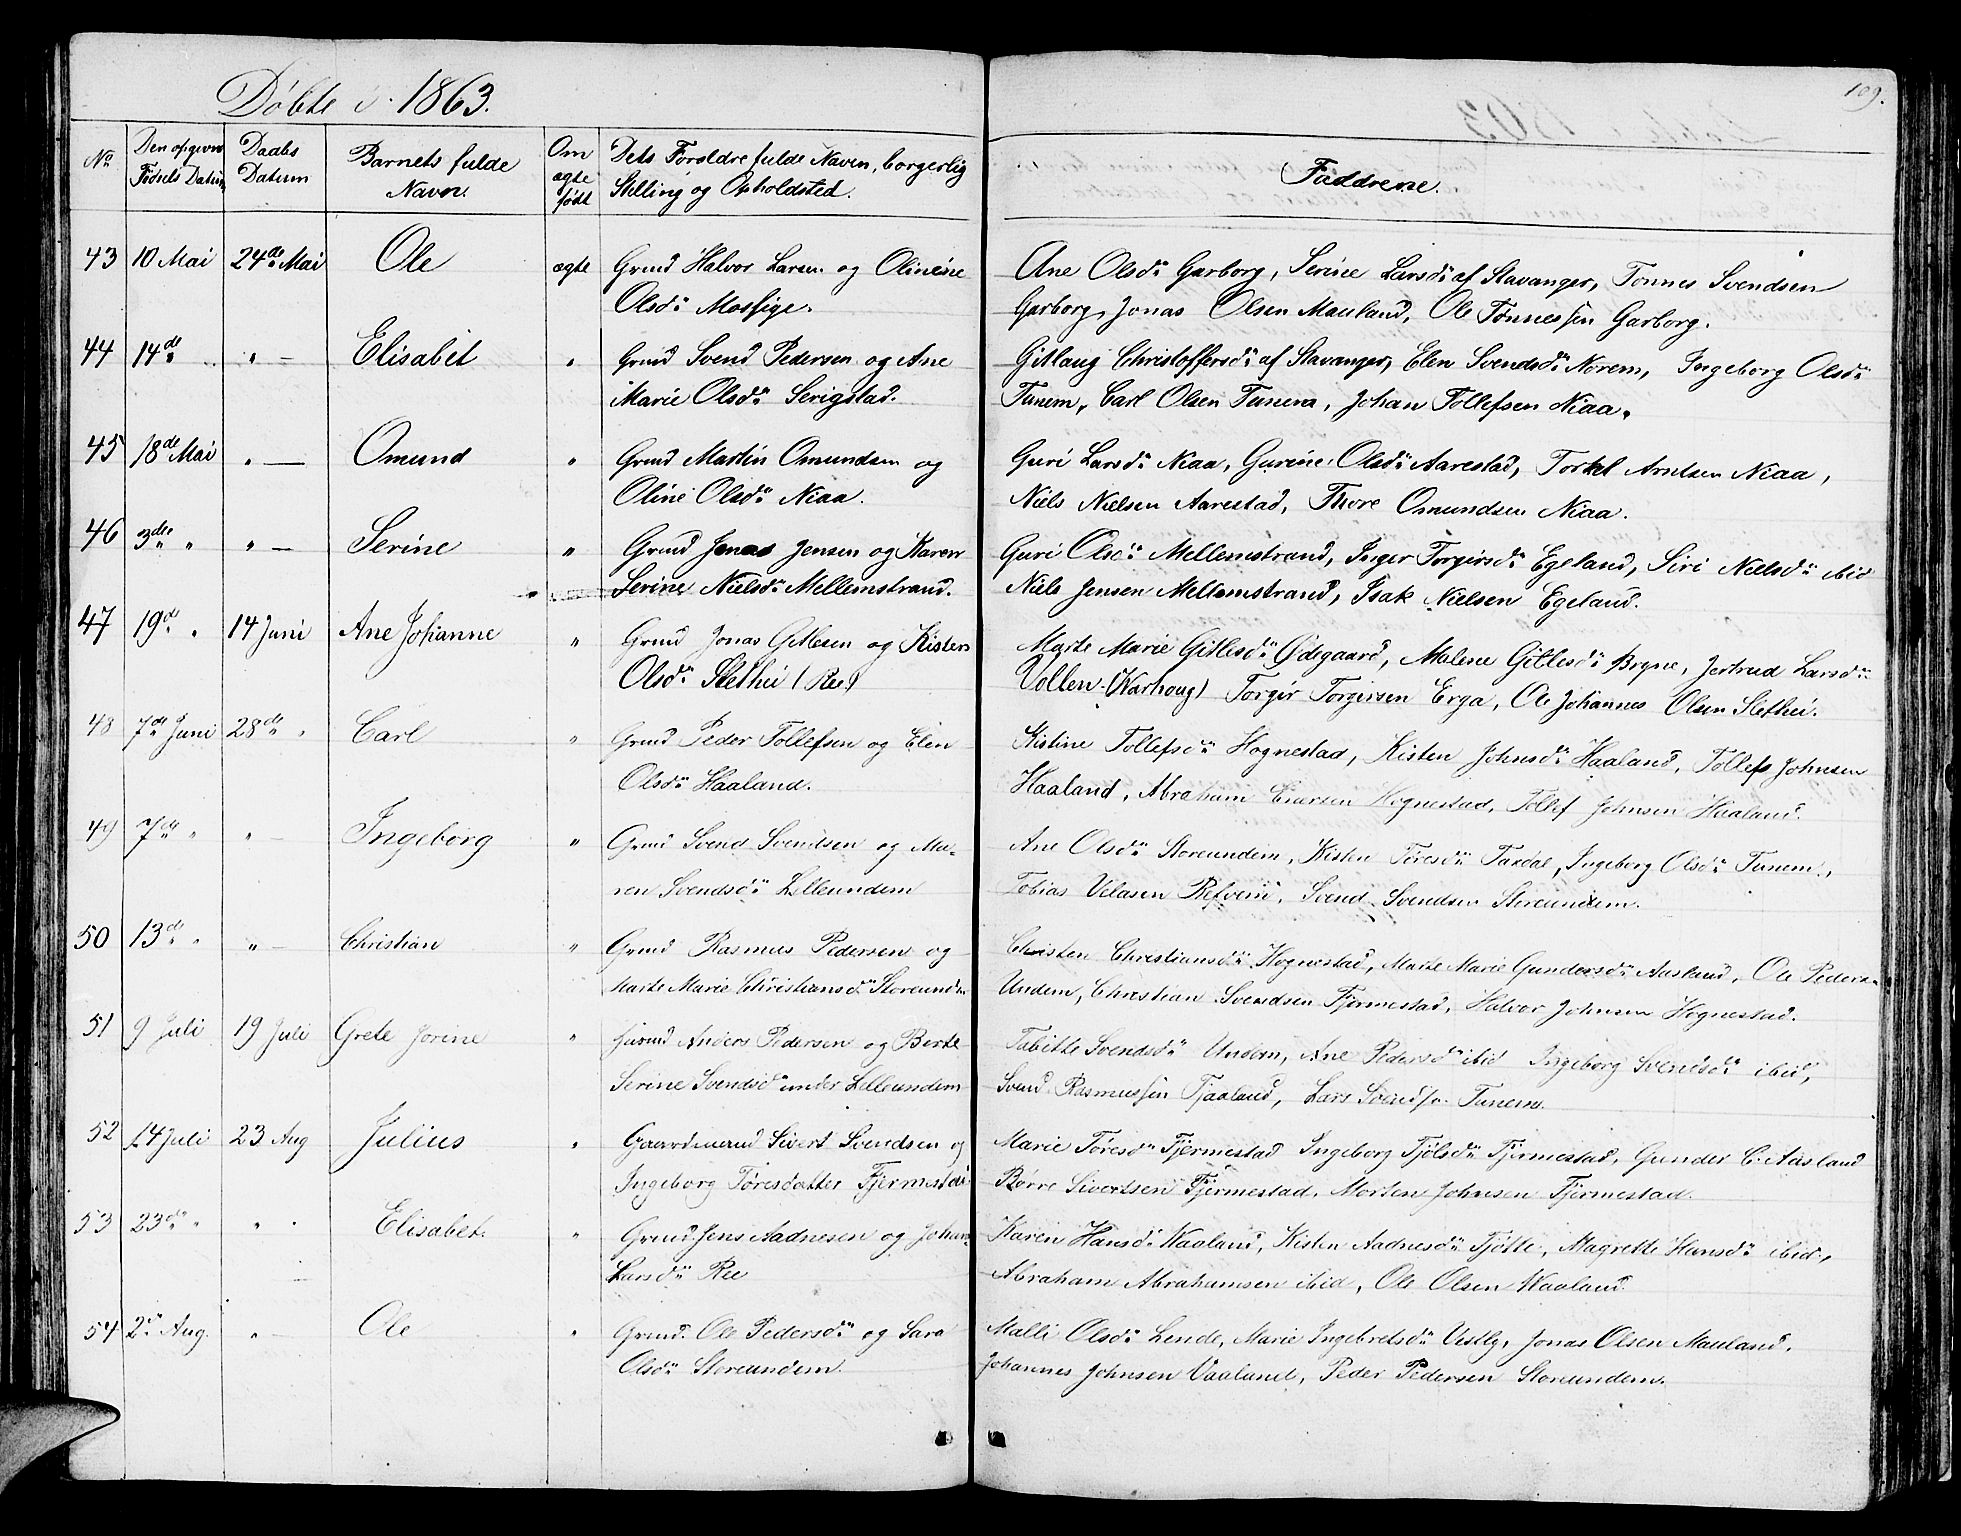 Døbte i 1863.
109.
No
Den opgivne Fødsels Datum
Daabs Datum
Barnets fulde Navn.
Om ægte født
Dets Forældre fulde Navn, borgerlig Stilling og Opholdsted.
Faddrene.
43 10 Mai 24de Mai Ole ægte Grmd Halvor Larsen og Olinène
Olsdr Mossige.
Ane Olsdr Garborg, Serine Larsdr af Stavanger, Tønnes Svendsen
Garborg, Jonas Olsen Mauland, Ole Tønnessen Garborg.
44 14de " — Elisabet " Grmd Svend Pedersen og Ane
Marie Olsdr Serigstad.
Gitlaug Christoffersdr af Stavanger, Elen Svendsdr Norem, Ingeborg Olsdr
Tunem, Carl Olsen Tunem, Johan Tollefsen Niaa.
45 18de Mai " — Omund " Grmd Martin Omundsen og
Oline Olsdr Niaa.
Guri Larsdr Niaa, Gurine Olsdr Aarestad, Torkel Arntsen Niaa,
Niels Nielsen Aarestad, Thore Omundsen Niaa.
46 3die " " — Serine " Grmd Jonas Jensen og Karen
Serine Nielsdr Mellemstrand.
Guri Olsdr Mellemstrand, Inger Torgirsdr Egeland, Siri Nielsdr ibid
Niels Jensen Mellemstrand, Isak Nielsen Egeland.
47 19de " 14 Juni Ane Johanne " Grmd Jonas Gitlesen og Kisten
Olsdr Slethei (Ree)
Marte Marie Gitlesdr Ødegaard, Malene Gitlesdr Bryne, Jertrud Larsdr
Vollen (Varhoug) Torgir Torgirsen Erga, Ole Johannes Olsen Slethei.
48 7de Juni 28de " Carl " Grmd Peder Tollefsen og Elen
Olsdr Haaland.
Kistine Tollefsdr Hognestad, Kisten Johnsdr Haaland, Tollef Johnsen
Haaland, Abraham Enarsen Hognestad, Tollef Johnsen Haaland.
49 7de " " — Ingeborg " Grmd Svend Svendsen og Ma-
ren Svendsdr Lilleundem
Ane Olsdr Storeundem, Kisten Toresdr Taxdal, Ingeborg Olsdr Tunem,
Tobias Velasen Refveim, Svend Svendsen Storeundem.
50 13de " " — Christian " Grmd Rasmus Pedersen og
Marte Marie Christiansdr Storeundem
Christen Christiansdr Hognestad, Marte Marie Gundersdr Aasland, Ole Pedersen
Undem, Christian Svendsen Fjermestad, Halvor Johnsen Hognestad.
51 9 Juli 19 Juli Grete Jorine " Huusmd Anders Pedersen og Berte
Serine Svendsdr under Lilleundem
Tabitte Svendsdr Undem, Ane Pedersdr ibid Ingeborg Svendsdr ibid,
Svend Rasmussen Tjaaland, Lars Svendsen Tunem.
52 14 Juli 23 Aug Julius " Gaardmand Sivert Svendsen og
Ingeborg Toresdatter Fjermestad
Marie Toresdr Fjermestad Ingeborg Tjølsdr Fjermestad, Gunder C. Aasland
Børre Sivertsen Fjermestad, Morten Johnsen Fjermestad.
53 23de " " " Elisabet. " Grmd Jens Aadnesen og Johan-
Larsdr Ree
Karen Hansdr Vaaland, Kisten Aadnesdr Tjøtte, Magrette Hansdr ibid,
Abraham Abrahamsen ibid, Ole Olsen Vaaland.
54 2den Aug. " — Ole " Grmd. Ole Pedersdr og Sara
Olsdr Storeundem.
Malli Olsdr Lende, Marie Ingebretsdr Vestly, Jonas Olsen Mauland,
Johannes Johnsen Vaaland, Peder Pedersen Storeundem.